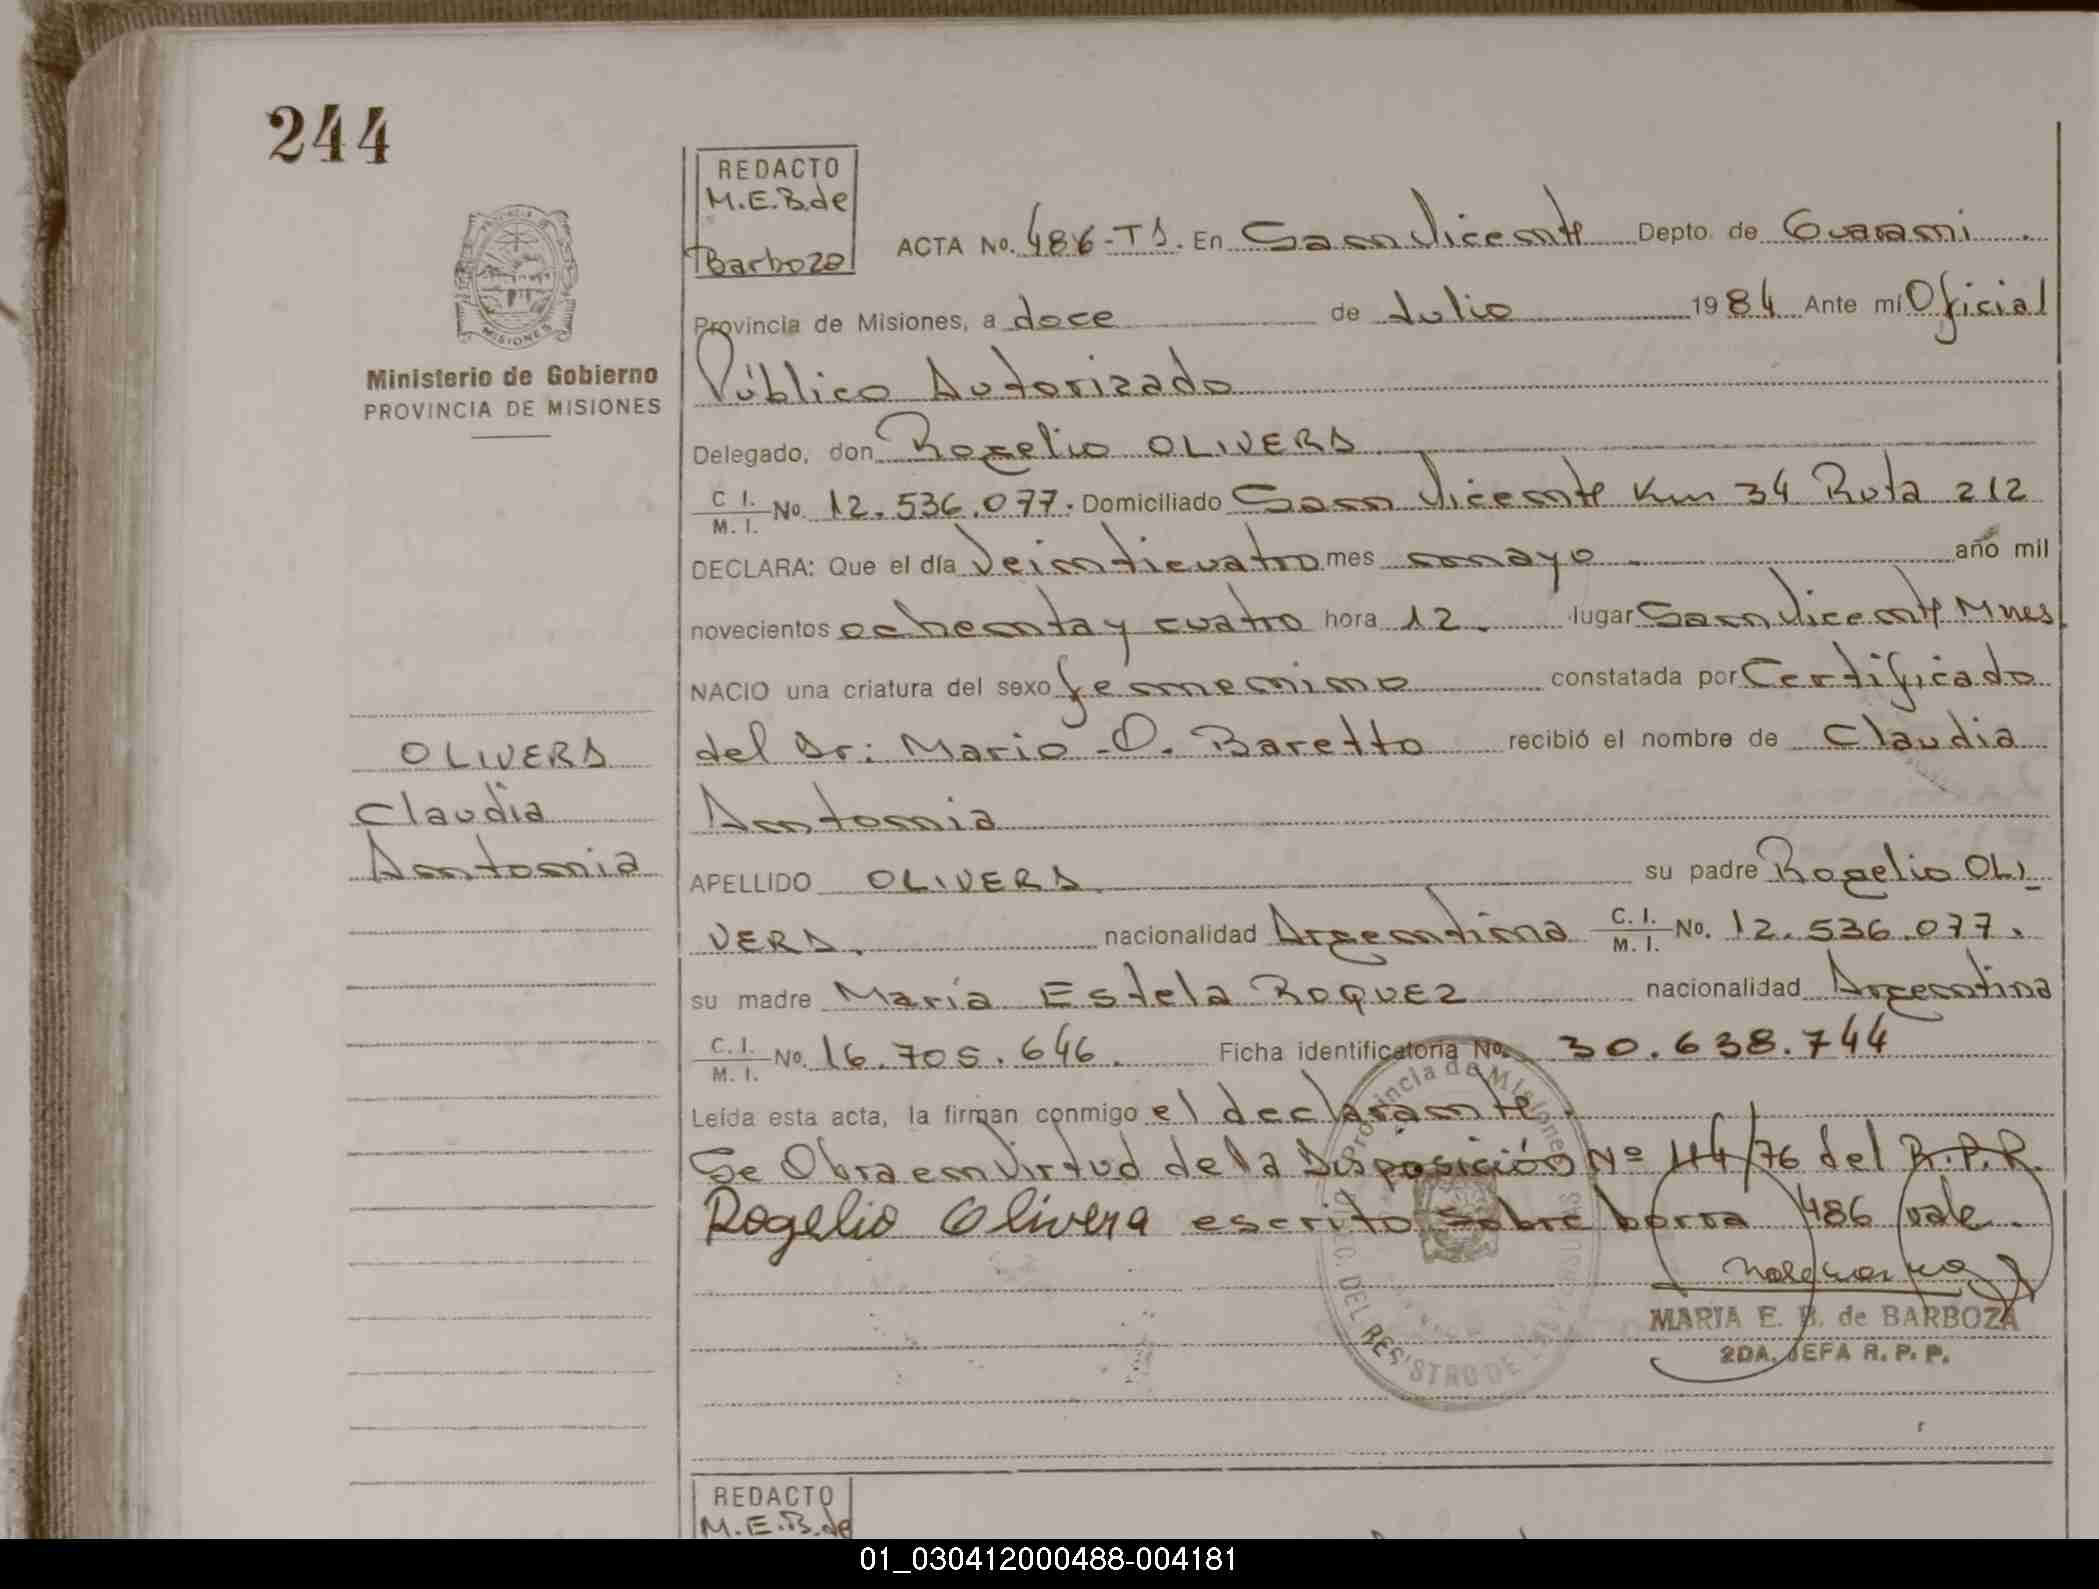 244
REDACTO
M.E.B.de
Barboza
ACTA No. 486-TS. En San Vicente Depto. de Guarani
Provincia de Misiones, a doce de Julio 1984 Ante mí Oficial
Público Autorizado
PROVINCIA DE
MISIONES
Ministerio de Gobierno
PROVINCIA DE MISIONES
Delegado, don Rogelio OLIVERA
C. I.
M. I. No. 12.536.077. Domiciliado San Vicente Km 34 Ruta 212
DECLARA: Que el día Veinticuatro mes mayo año mil
novecientos ochenta y cuatro hora 12. lugar San Vicente Mnes
NACIO una criatura del sexo femenino constatada por Certificado
del Dr: Mario O. Baretto recibió el nombre de Claudia
Antonia
OLIVERA
Claudia
Antonia
APELLIDO OLIVERA su padre Rogelio OLI
VERA. nacionalidad Argentina C. I.
M. I. No. 12.536.077.
su madre María Estela ROQUEZ nacionalidad Argentina
C. I.
M. I. No. 16.705.646. Ficha identificatoria No. 30.638.744
Leída esta acta, la firman conmigo el declarante.
Se Obra en Virtud de la Disposición Nº 114/76 del R.P.R.
Rogelio Olivera escrito sobre borra 486 vale.
Provincia de Misiones
DEL REGISTRO DE LAS PERSONAS
MARIA E. B. de BARBOZA
2DA. JEFA R. P. P.
REDACTO
M.E.B.de
01_030412000488-004181